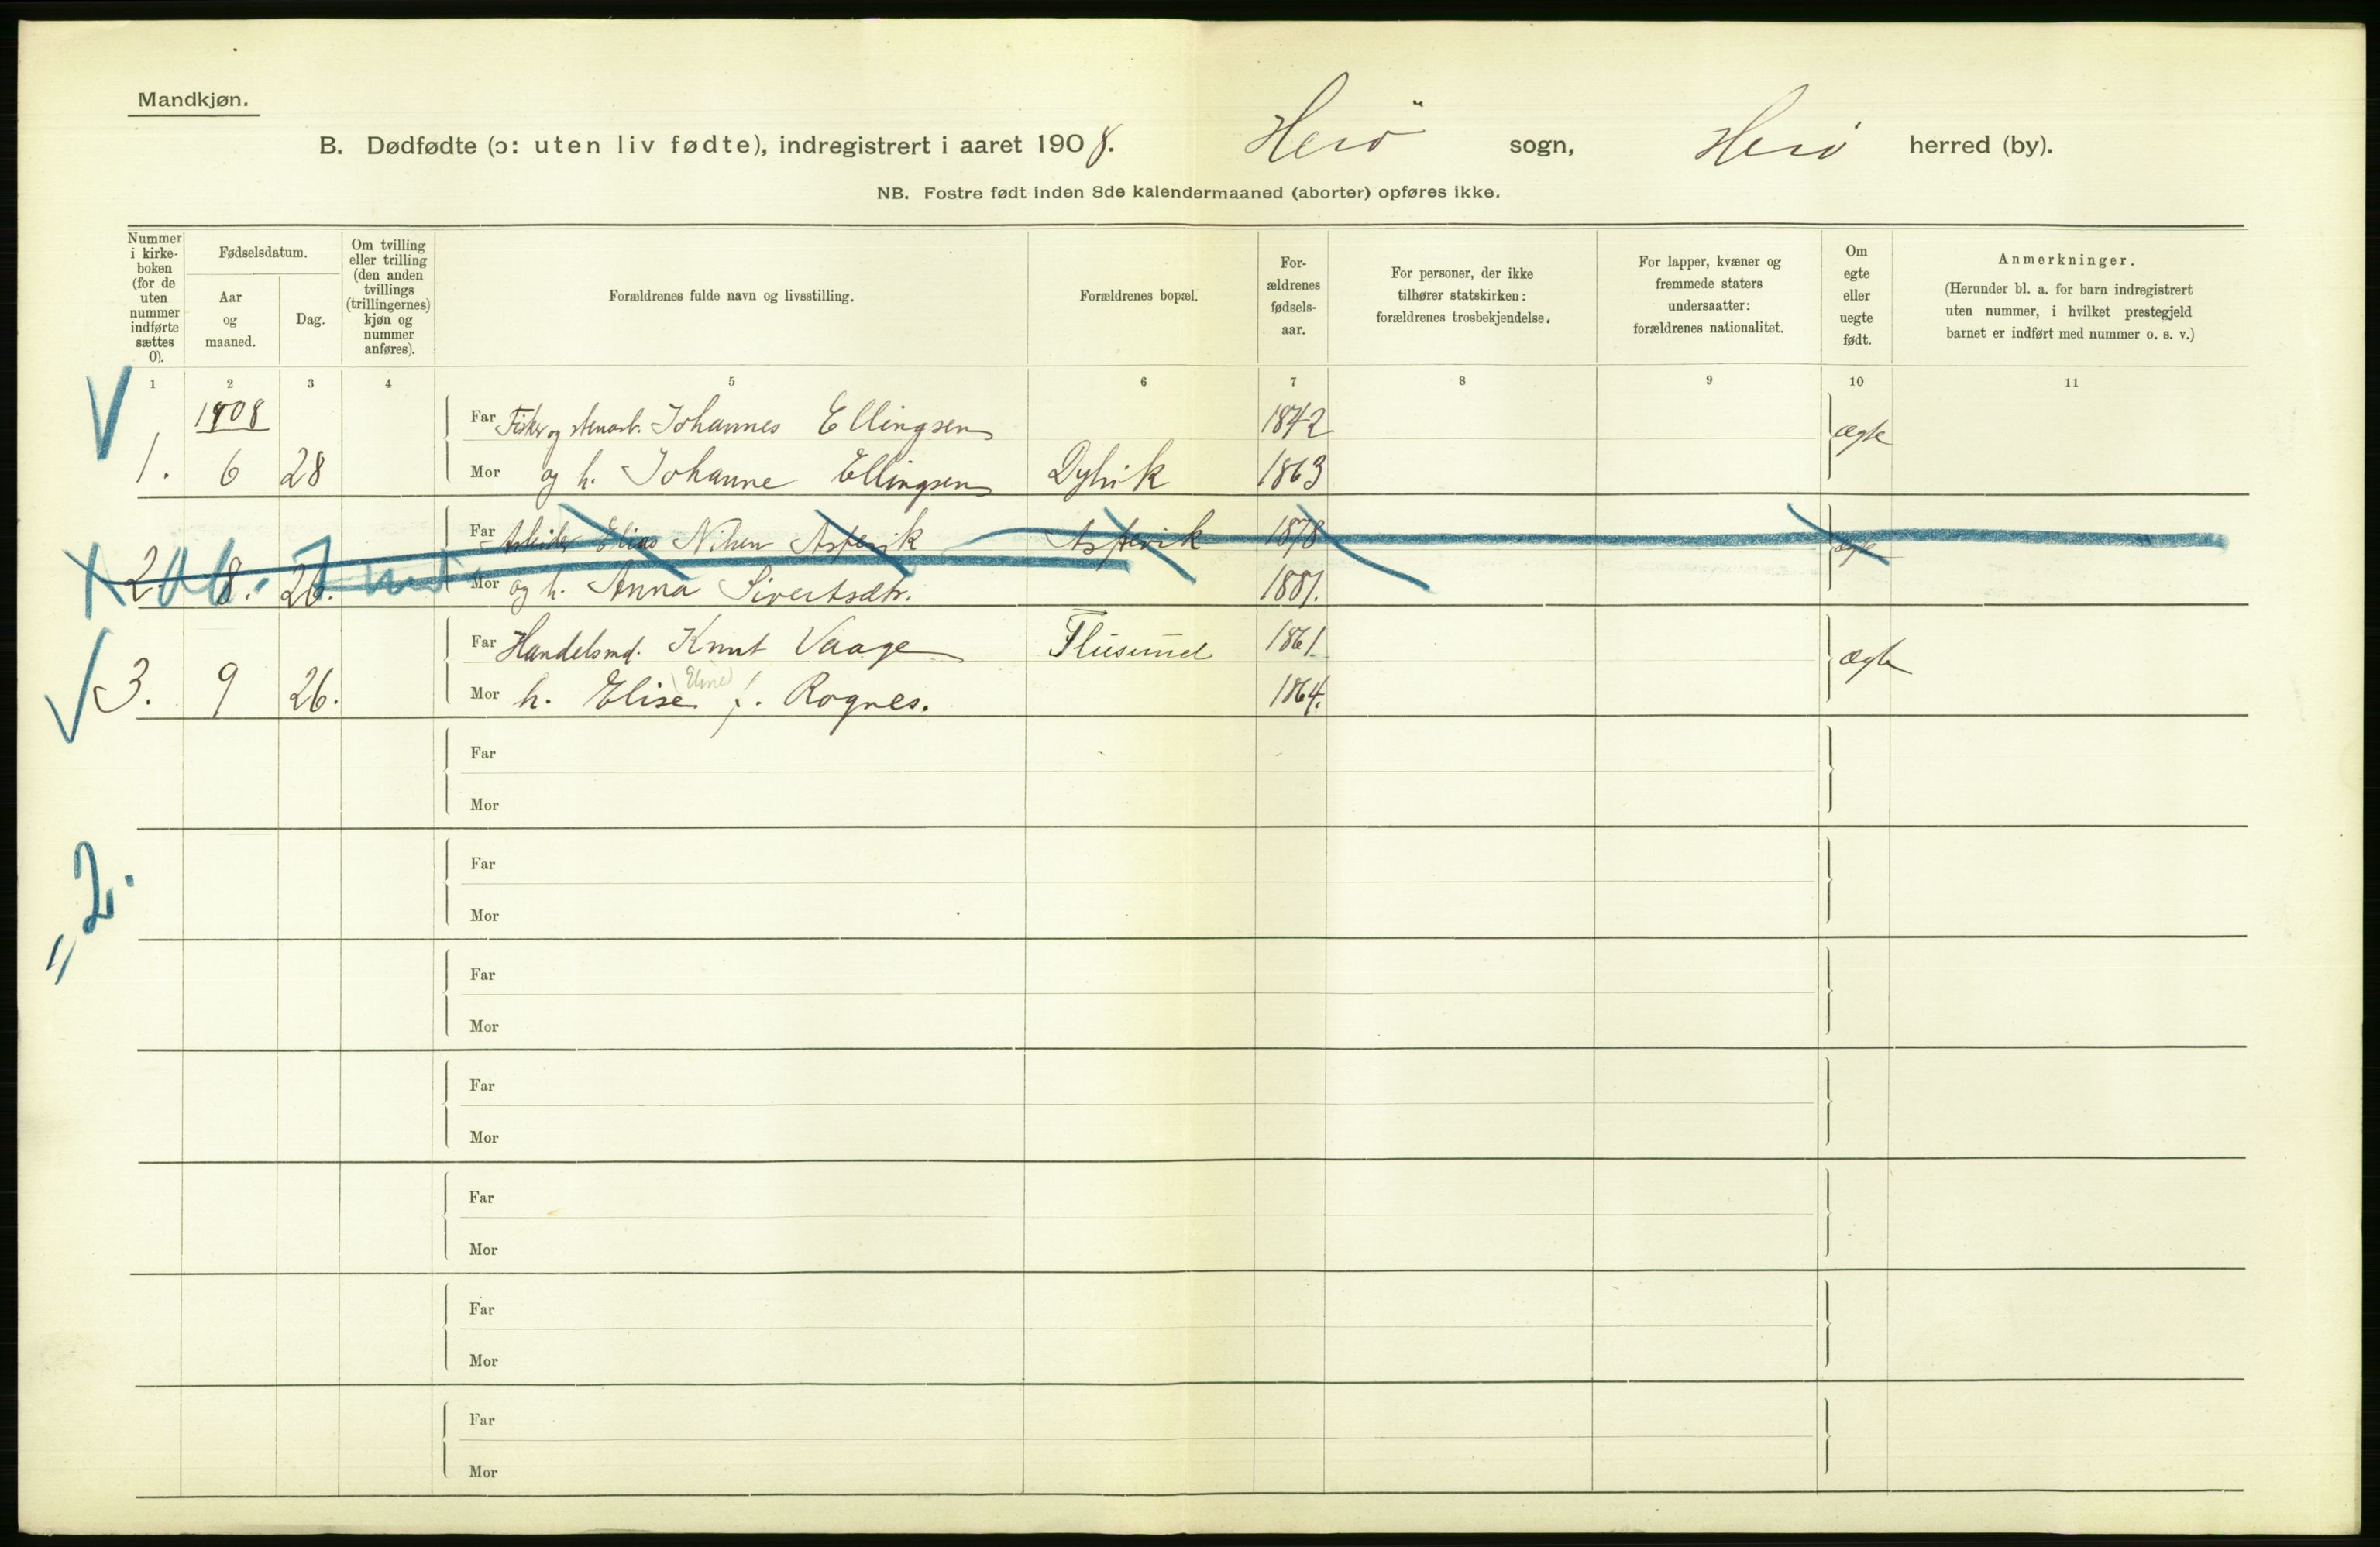 Mandkjøn.
B. Dødfødte (ɔ: uten liv fødte), indregistrert i aaret 1908. Herö sogn, Herö herred (by).
NB. Fostre født inden 8de kalendermaaned (aborter) opføres ikke.
Nummer i kirke-boken (for de uten nummer indførte sættes 0).
Fødselsdatum.
Aar og maaned.
Dag.
Om tvilling eller trilling (den anden tvillings (trillingernes) kjøn og nummer anføres).
Forældrenes fulde navn og livsstilling.
Forældrenes bopæl.
For-ældrenes fødsels-aar.
For personer, der ikke tilhører statskirken: forældrenes trosbekjendelse.
For lapper, kvæner og fremmede staters undersaatter: forældrenes nationalitet.
Om egte eller uegte født.
Anmerkninger.
(Herunder bl. a. for barn indregistrert uten nummer, i hvilket prestegjeld barnet er indført med nummer o. s. v.)
1 2 3 4 5 6 7 8 9 10 11
1908 Far Fisker og stenarb. Johannes Ellingsen 1842 ægte
1. 6 28 Mor og h. Johanne Ellingsen 1863
Far Arbeider Elias Nilsen Aspevik Aspevik 1878 ægte
2. 8. 26. Mor og h. Anna Sivertsdtr. 1881.
Far Handelsmd. Knut Vaage Flusund 1861. ægte
3. 9 26. Mor h. Elise f. Rognes. 1864.
Far
Mor
Far
Mor
= 2.
Far
Mor
Far
Mor
Far
Mor
Far
Mor
Far
Mor